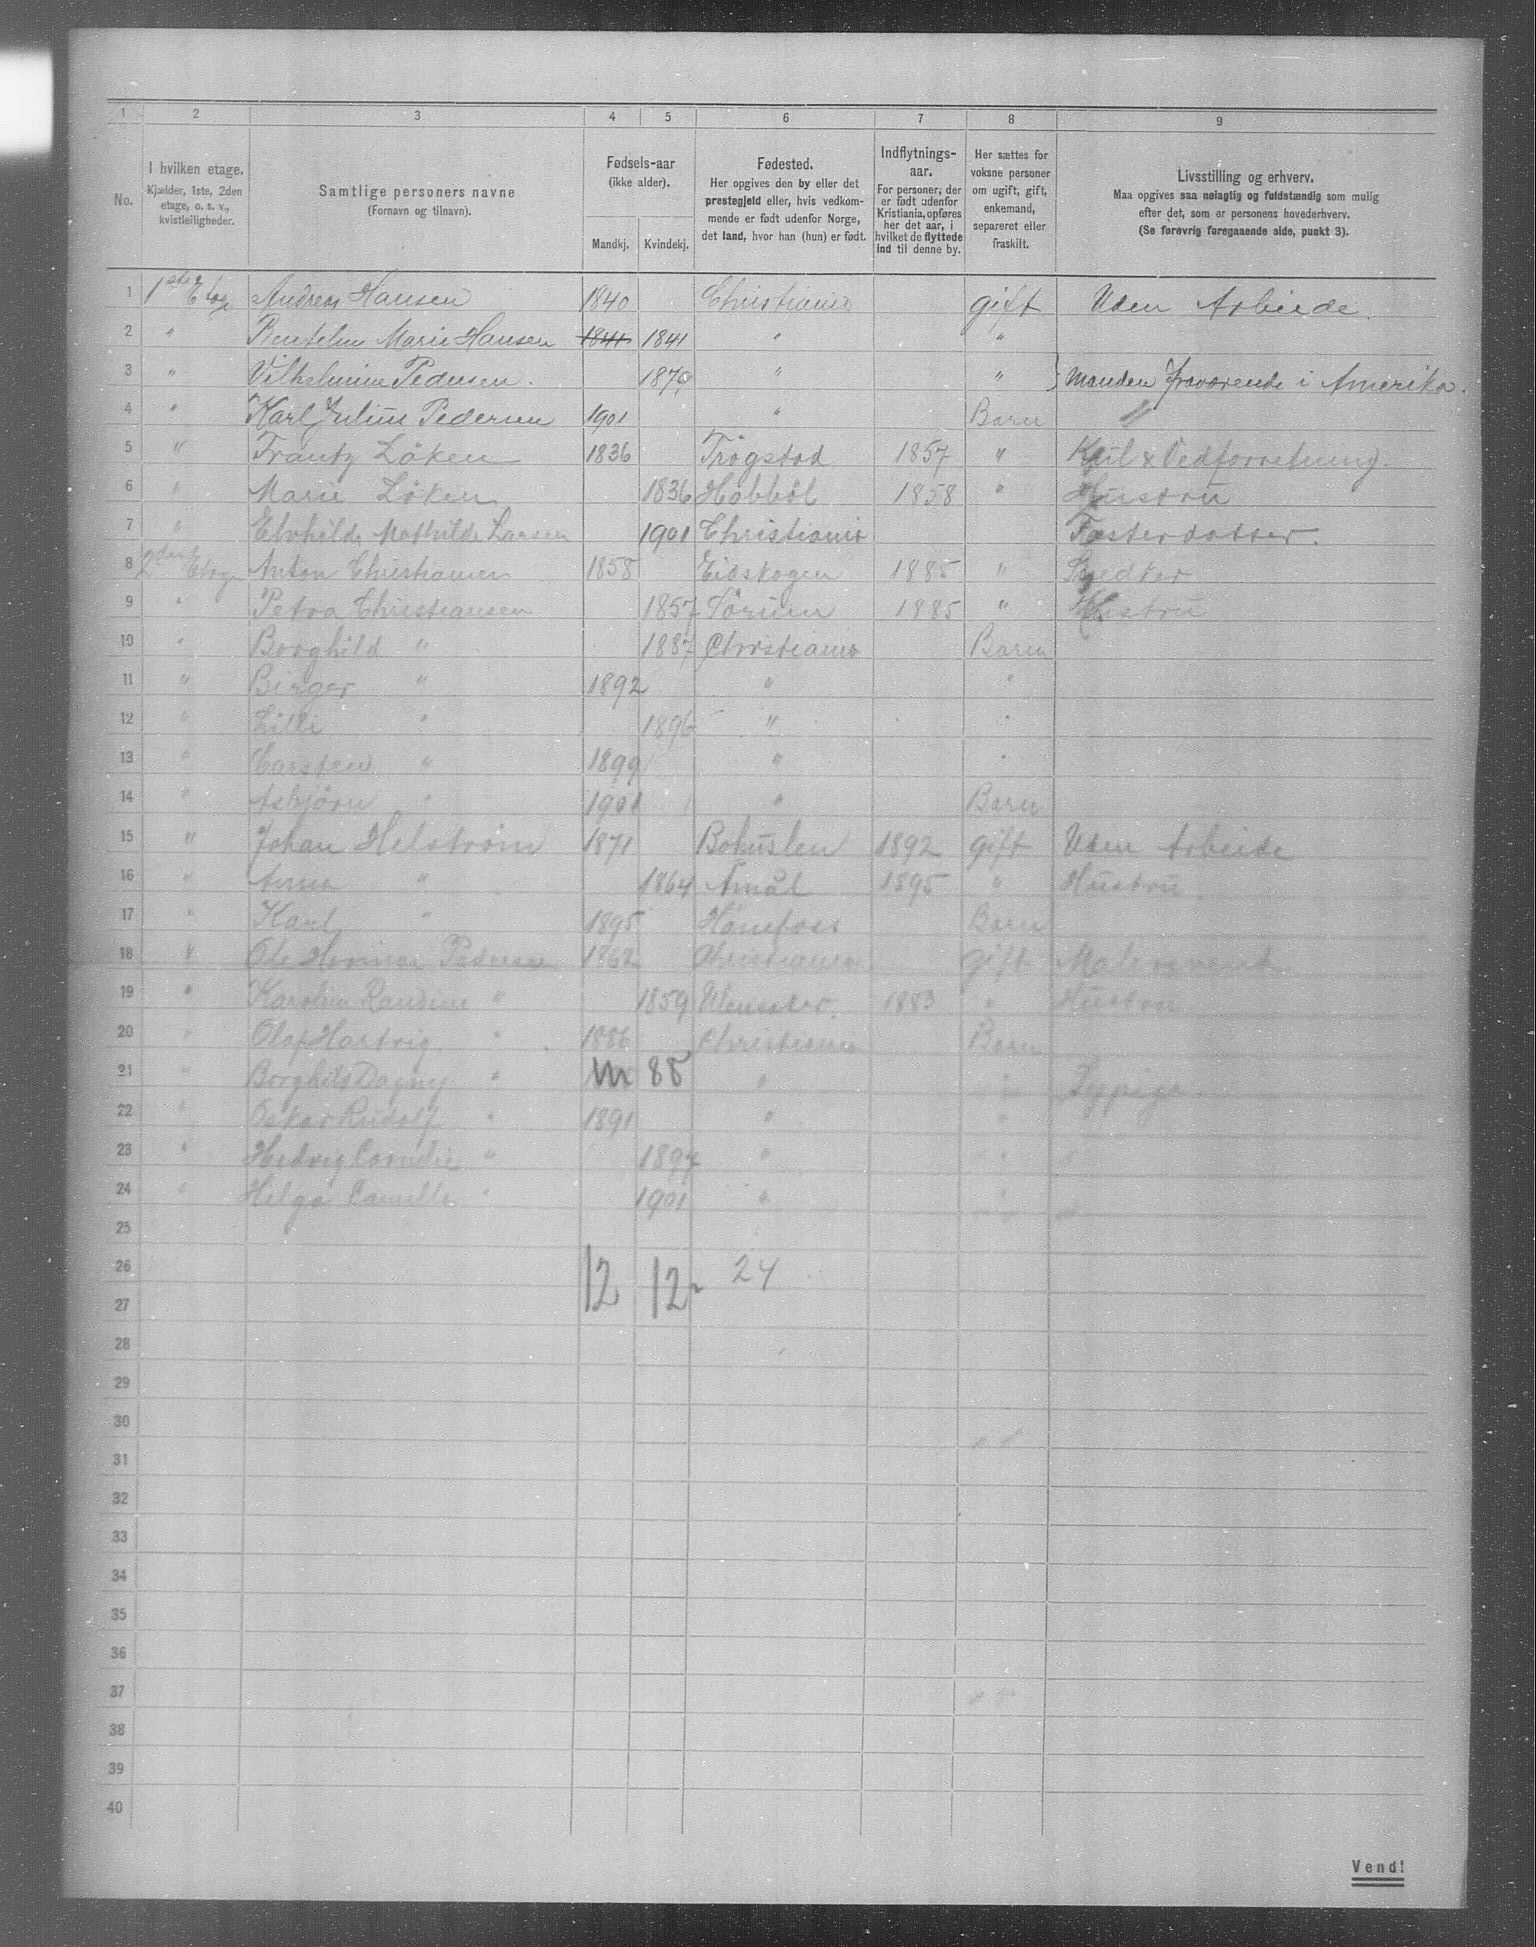 1 2 3 4 5 6 7 8 9
No.
I hvilken etage.
Kjælder, 1ste, 2den
etage, o. s. v.,
kvistleiligheder.
Samtlige personers navne
(Fornavn og tilnavn).
Fødsels-aar
(ikke alder).
Mandkj. Kvindekj.
Fødested.
Her opgives den by eller det
prestegjeld eller, hvis vedkom-
mende er født udenfor Norge,
det land, hvor han (hun) er født.
Indflytnings-
aar.
For personer, der
er født udenfor
Kristiania, opføres
her det aar, i
hvilket de flyttede
ind til denne by.
Her sættes for
voksne personer
om ugift, gift,
enkemand,
separeret eller
fraskilt.
Livsstilling og erhverv.
Maa opgives saa nøiagtig og fuldstændig som mulig
efter det, som er personens hovederhverv.
(Se forøvrig foregaaende side, punkt 3).
1 1ste Etage Andreas Hansen 1840 Christiania gift Uden Arbeide.
2 " Marie Hansen 1841 1841 " "
3 " Vilhelmine Pedersen. 1879 " " } Manden fraværende i Amerika.
4 " Karl Julius Pedersen 1901 " Barn "
5 " Frantz Löken 1836 Trögstad 1857 " Kul & Vedforretning.
6 " Marie Löken 1836 Haabböl 1858 " Hustru
7 " Mathilde Larsen 1901 Christiania Fosterdatter.
8 2den Etage Anton Christiansen 1858 Eidskogen 1885 " Snedker
9 " Petra Christiansen 1857 Sörum 1885 " Hustru
10 " Borghild " 1887 Christiania Barn
11 " Birger " 1892 " "
12 " Lilli " 1896 " "
13 " Carsten " 1899 " "
14 " Asbjörn " 1901 " Barn
15 " Johan Helström 1871 Bohuslen 1892 gift Uden Arbeide
16 " Anna " 1864 Åmål 1895 " Hustru
17 " Karl " 1895 Hönefoss Barn
18 " Ole Pedersen 1862 Christiania gift
19 " Karoline Randine " 1859 Ullensaker. 1883 " Hustru
20 " Olaf Hartvig " 1886 Christiania Barn
21 " Borghild Dagny " 88 " "
22 " Oskar Rudolf " 1891 " "
23 " Hedvig " 1897 " " "
24 " Helga Camilla " 1901 " " "
25
26 12 12 24
27
28
29
30
31
32
33
34
35
36
37
38
39
40
Vend!